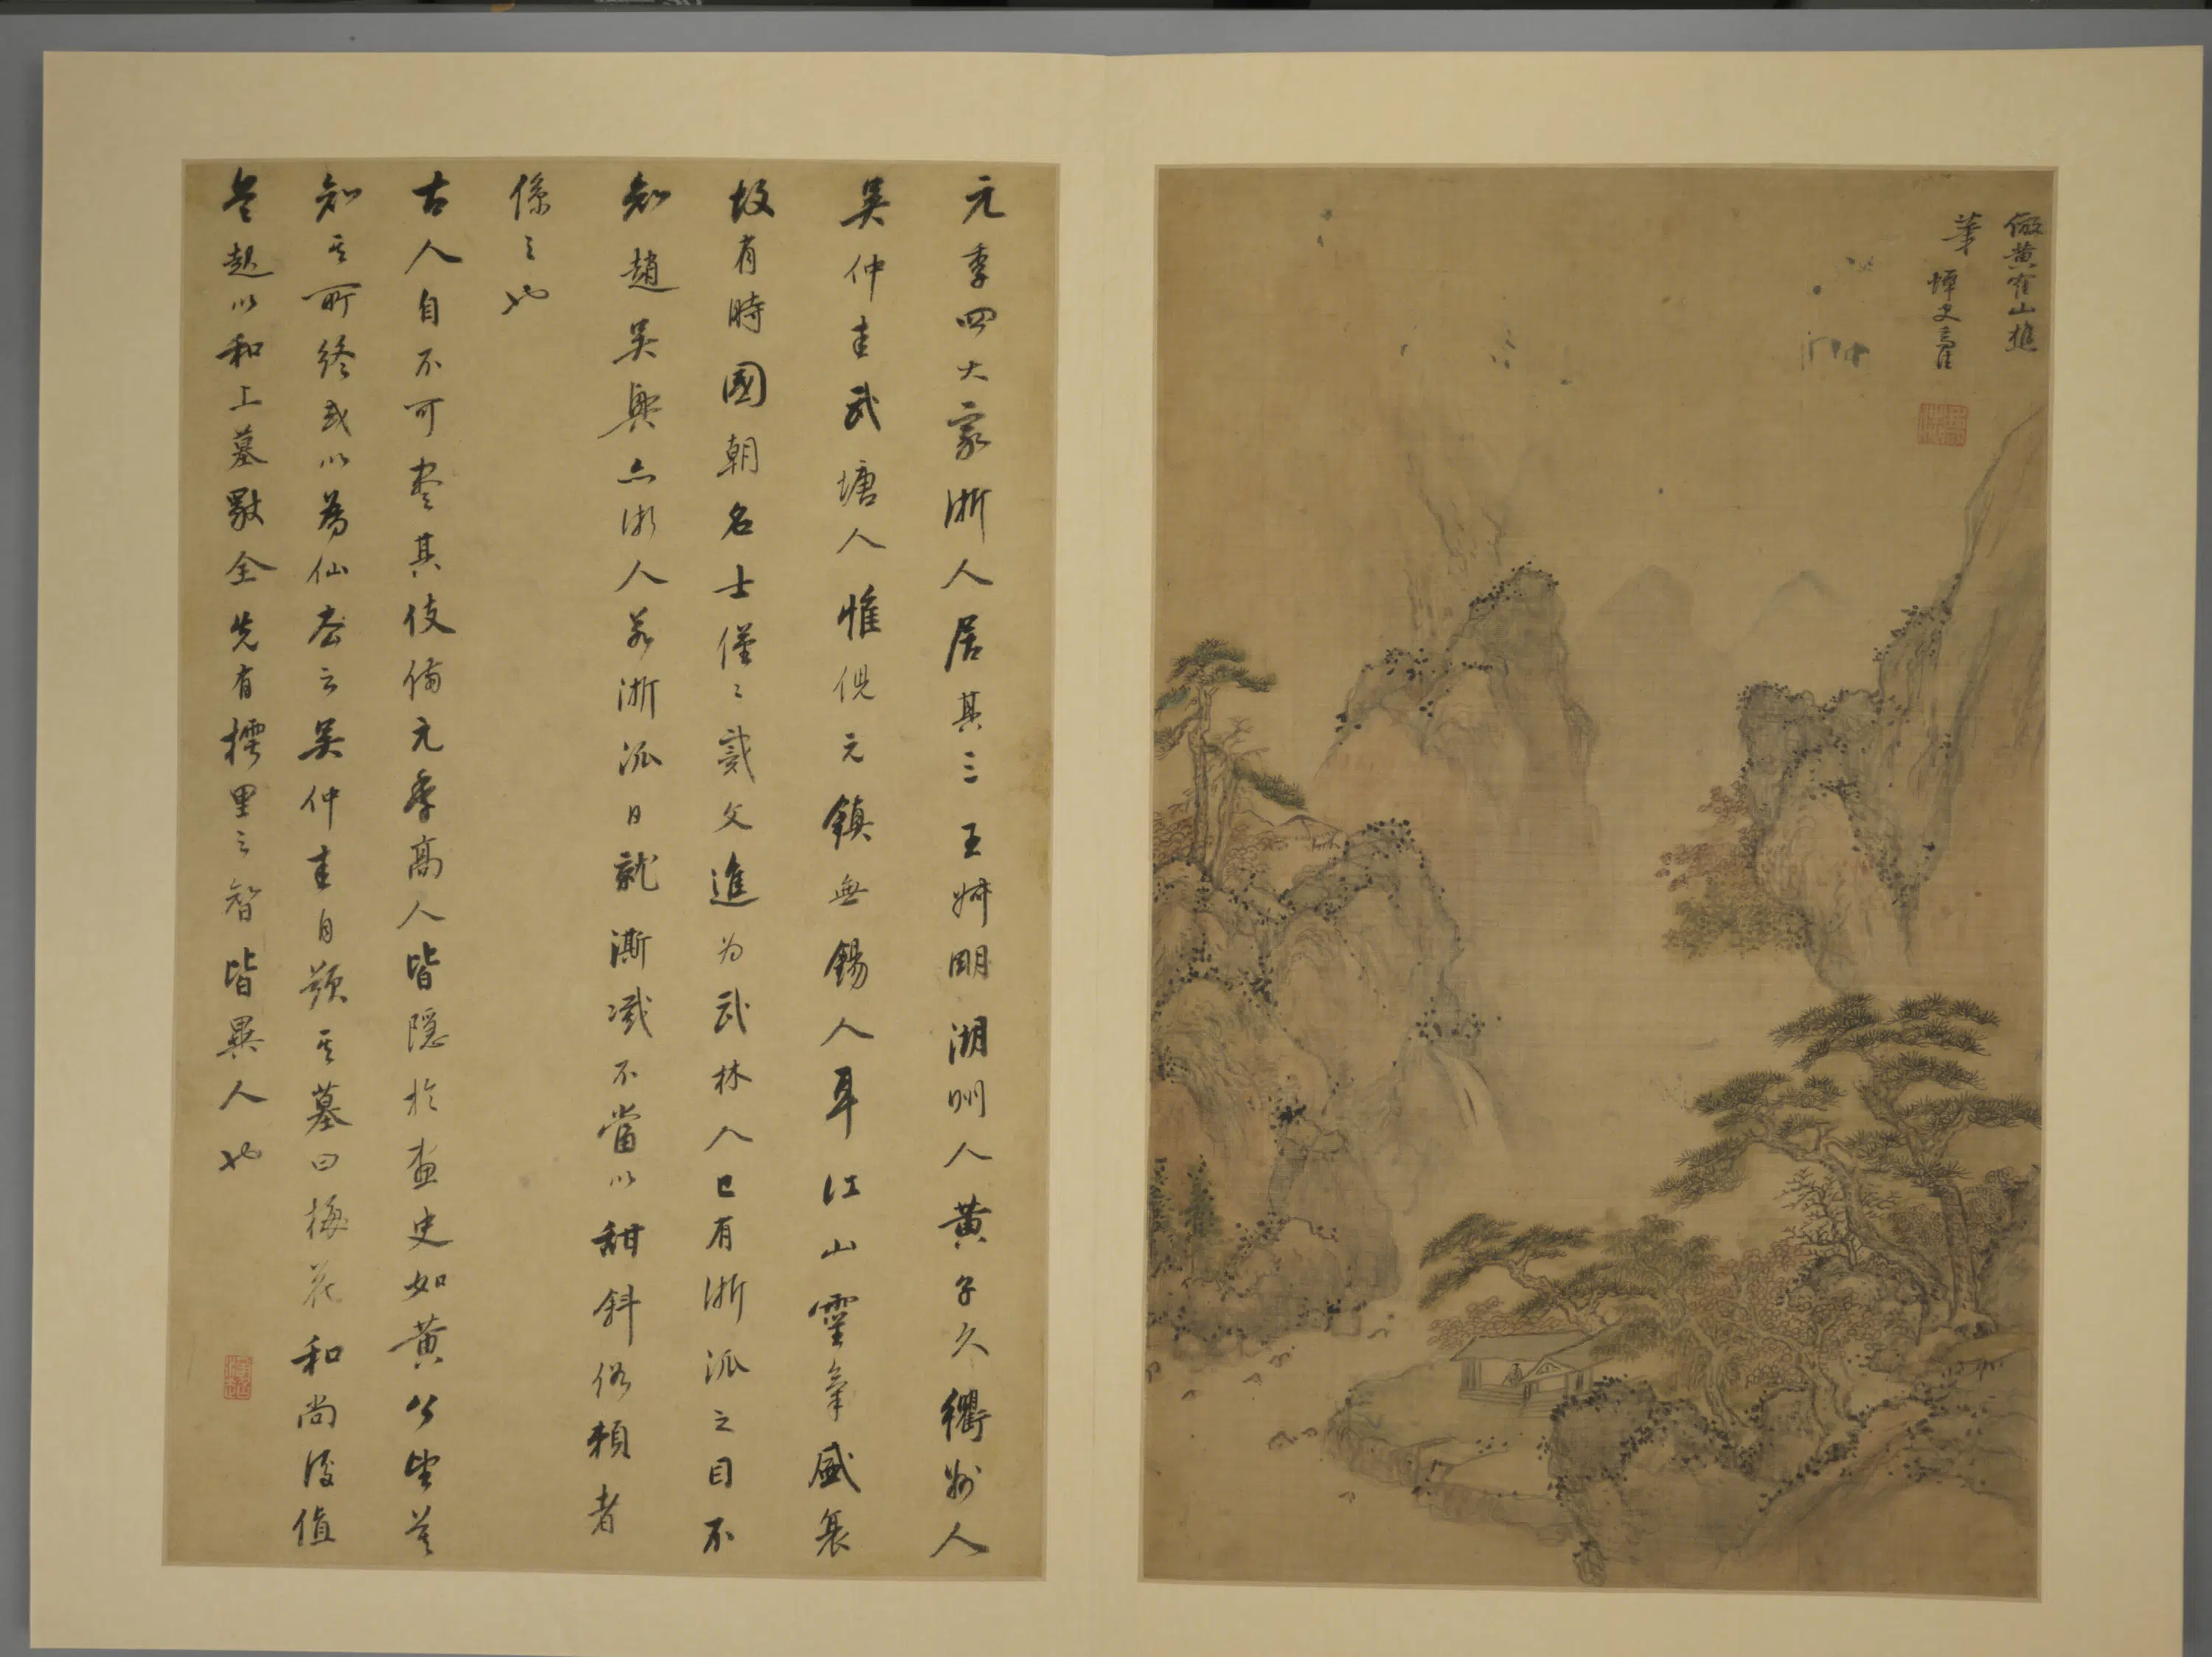 倣黃隺山樵
筆
元季四大家浙人居其三王叔明湖州人黃子久衢州人
吳仲圭武塘人惟倪元鎮無錫人耳江山靈氣盛衰
故有時國朝名士僅〻戴文進为武林人已有浙派之目不
知趙吳興亦浙人若浙派日就澌滅不當以甜斜俗賴者
係之也
古人自不可盡其伎倆元季高人皆隱於畫史如黃公望莫
知其所終或以為仙去云吳仲圭自題其墓曰梅花和尚後值
兵起以和上墓全先有樗里之智皆異人也